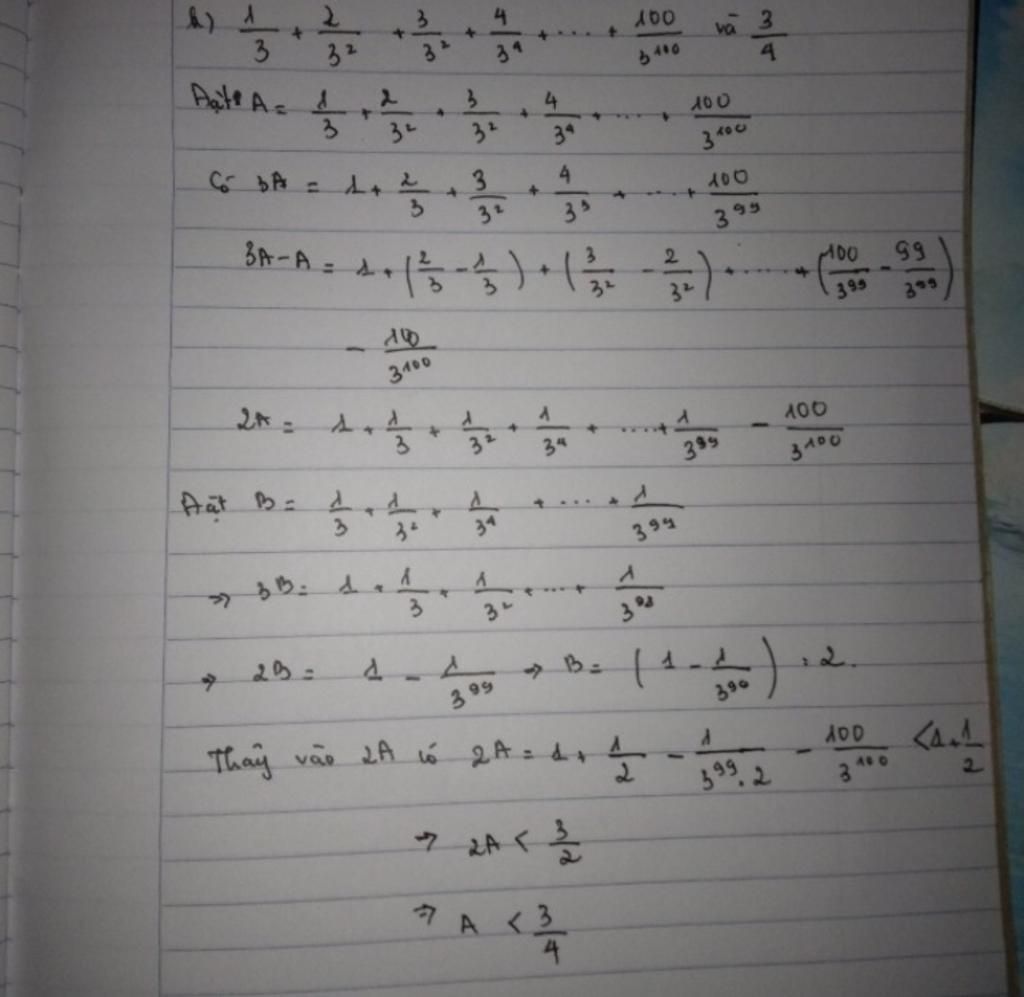 h) 1/3 + 2/3² + 3/3² + 4/3⁴ + .... + 100/3¹⁰⁰ và 3/4
Đặt A = 1/3 + 2/3² + 3/3² + 4/3⁴ + .... + 100/3¹⁰⁰
Có 3A = 1 + 2/3 + 3/3² + 4/3³ + .... + 100/3⁹⁹
3A - A = 1 + (2/3 - 1/3) + (3/3² - 2/3²) + ..... + (100/3⁹⁹ - 99/3⁹⁹)
- 100/3¹⁰⁰
2A = 1 + 1/3 + 1/3² + 1/3⁴ + ....+ 1/3⁹⁹ - 100/3¹⁰⁰
Đặt B = 1/3 + 1/3² + 1/3⁴ + .... + 1/3⁹⁹
=> 3B = 1 + 1/3 + 1/3² + ... + 1/3⁹⁸
=> 2B = 1 - 1/3⁹⁹ => B = (1 - 1/3⁹⁹) : 2.
Thây vào 2A có 2A = 1 + 1/2 - 1/3⁹⁹.2 - 100/3¹⁰⁰ < 1 + 1/2
=> 2A < 3/2
=> A < 3/4